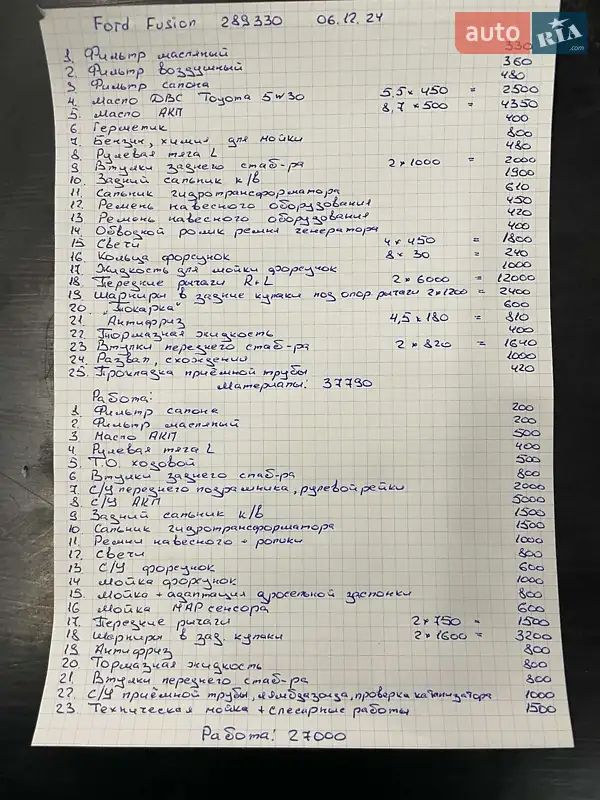 auto RIA .com
Ford Fusion 289330 06.12.24
1. Фильтр масляный 330
2. Фильтр воздушный 360
3 Фильтр салона 480
4. Масло ДВС Toyota 5w30 5,5 x 450 = 2500
5. Масло АКП 8,7 x 500 = 4350
6. Герметик 400
7. Бензин, химия для мойки 800
8. Рулевая тяга L 480
9 Втулки заднего стаб-ра 2 x 1000 = 2000
10. Задний сальник к/в 1900
11. Сальник гидротрансформатора 610
12. Ремень навесного оборудования 450
13 Ремень навесного оборудования 420
14. Обводной ролик ремня генератора 400
15 Свечи 4 x 450 = 1800
16. Кольца форсунок 8 x 30 = 240
17. Жидкость для мойки форсунок 1000
18 Передние рычаги R+L 2 x 6000 = 12000
19 Шарниры в задние кулаки под опор рычаги 2x1200 = 2400
20 "Токарка" 600
21. Антифриз 4,5 x 180 = 810
22. Тормазная жидкость 400
23 Втулки переднего стаб-ра 2 x 820 = 1640
24. Развал, схождении 1000
25. Прокладка приёмной трубы 420
Материалы: 37790
Работа:
1. Фильтр салона 200
2. Фильтр масляный 200
3 Масло АКП 500
4. Рулевая тяга L 400
5. Т.О. ходовой 500
6 Втулки заднего стаб-ра 800
7. С/У переднего подрамника, рулевой рейки 2000
8. С/У АКП 5000
9. Задний сальник к/в 1500
10 Сальник гидротрансформатора 1500
11. Ремни навесного + ролики 1000
12. Свечи 800
13 С/У форсунок 600
14 Мойка форсунок 1000
15. Мойка + адаптация дросельной заслонки 800
16 Мойка MAP сенсора 600
17. Передние рычаги 2 x 750 = 1500
18 Шарниры в зад. кулаки 2 x 1600 = 3200
19. Антифриз 800
20. Тормазная жидкость 800
21. Втулки переднего стаб-ра 800
22. С/У приёмной трубы, лямбдазонда, проверка катализатора 1000
23. Техническая мойка + слесарные работы 1500
Работа: 27000